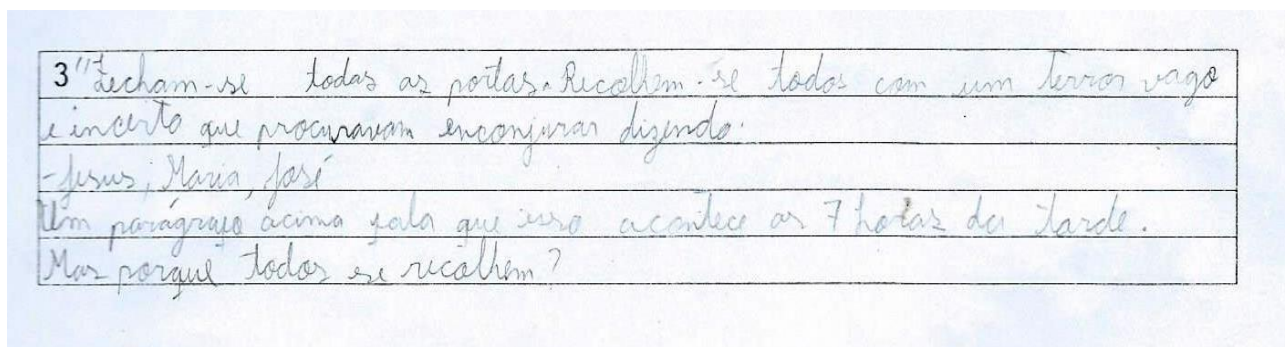 3 "Fecham-se todas as portas. Recolhem-se todos com um terror vago
e incerto que procuravam enconjurar dizendo:
-Jesus, Maria, José
Um parágrafo acima fala que isso acontece as 7 horas da tarde.
Mas porque todos se recolhem?